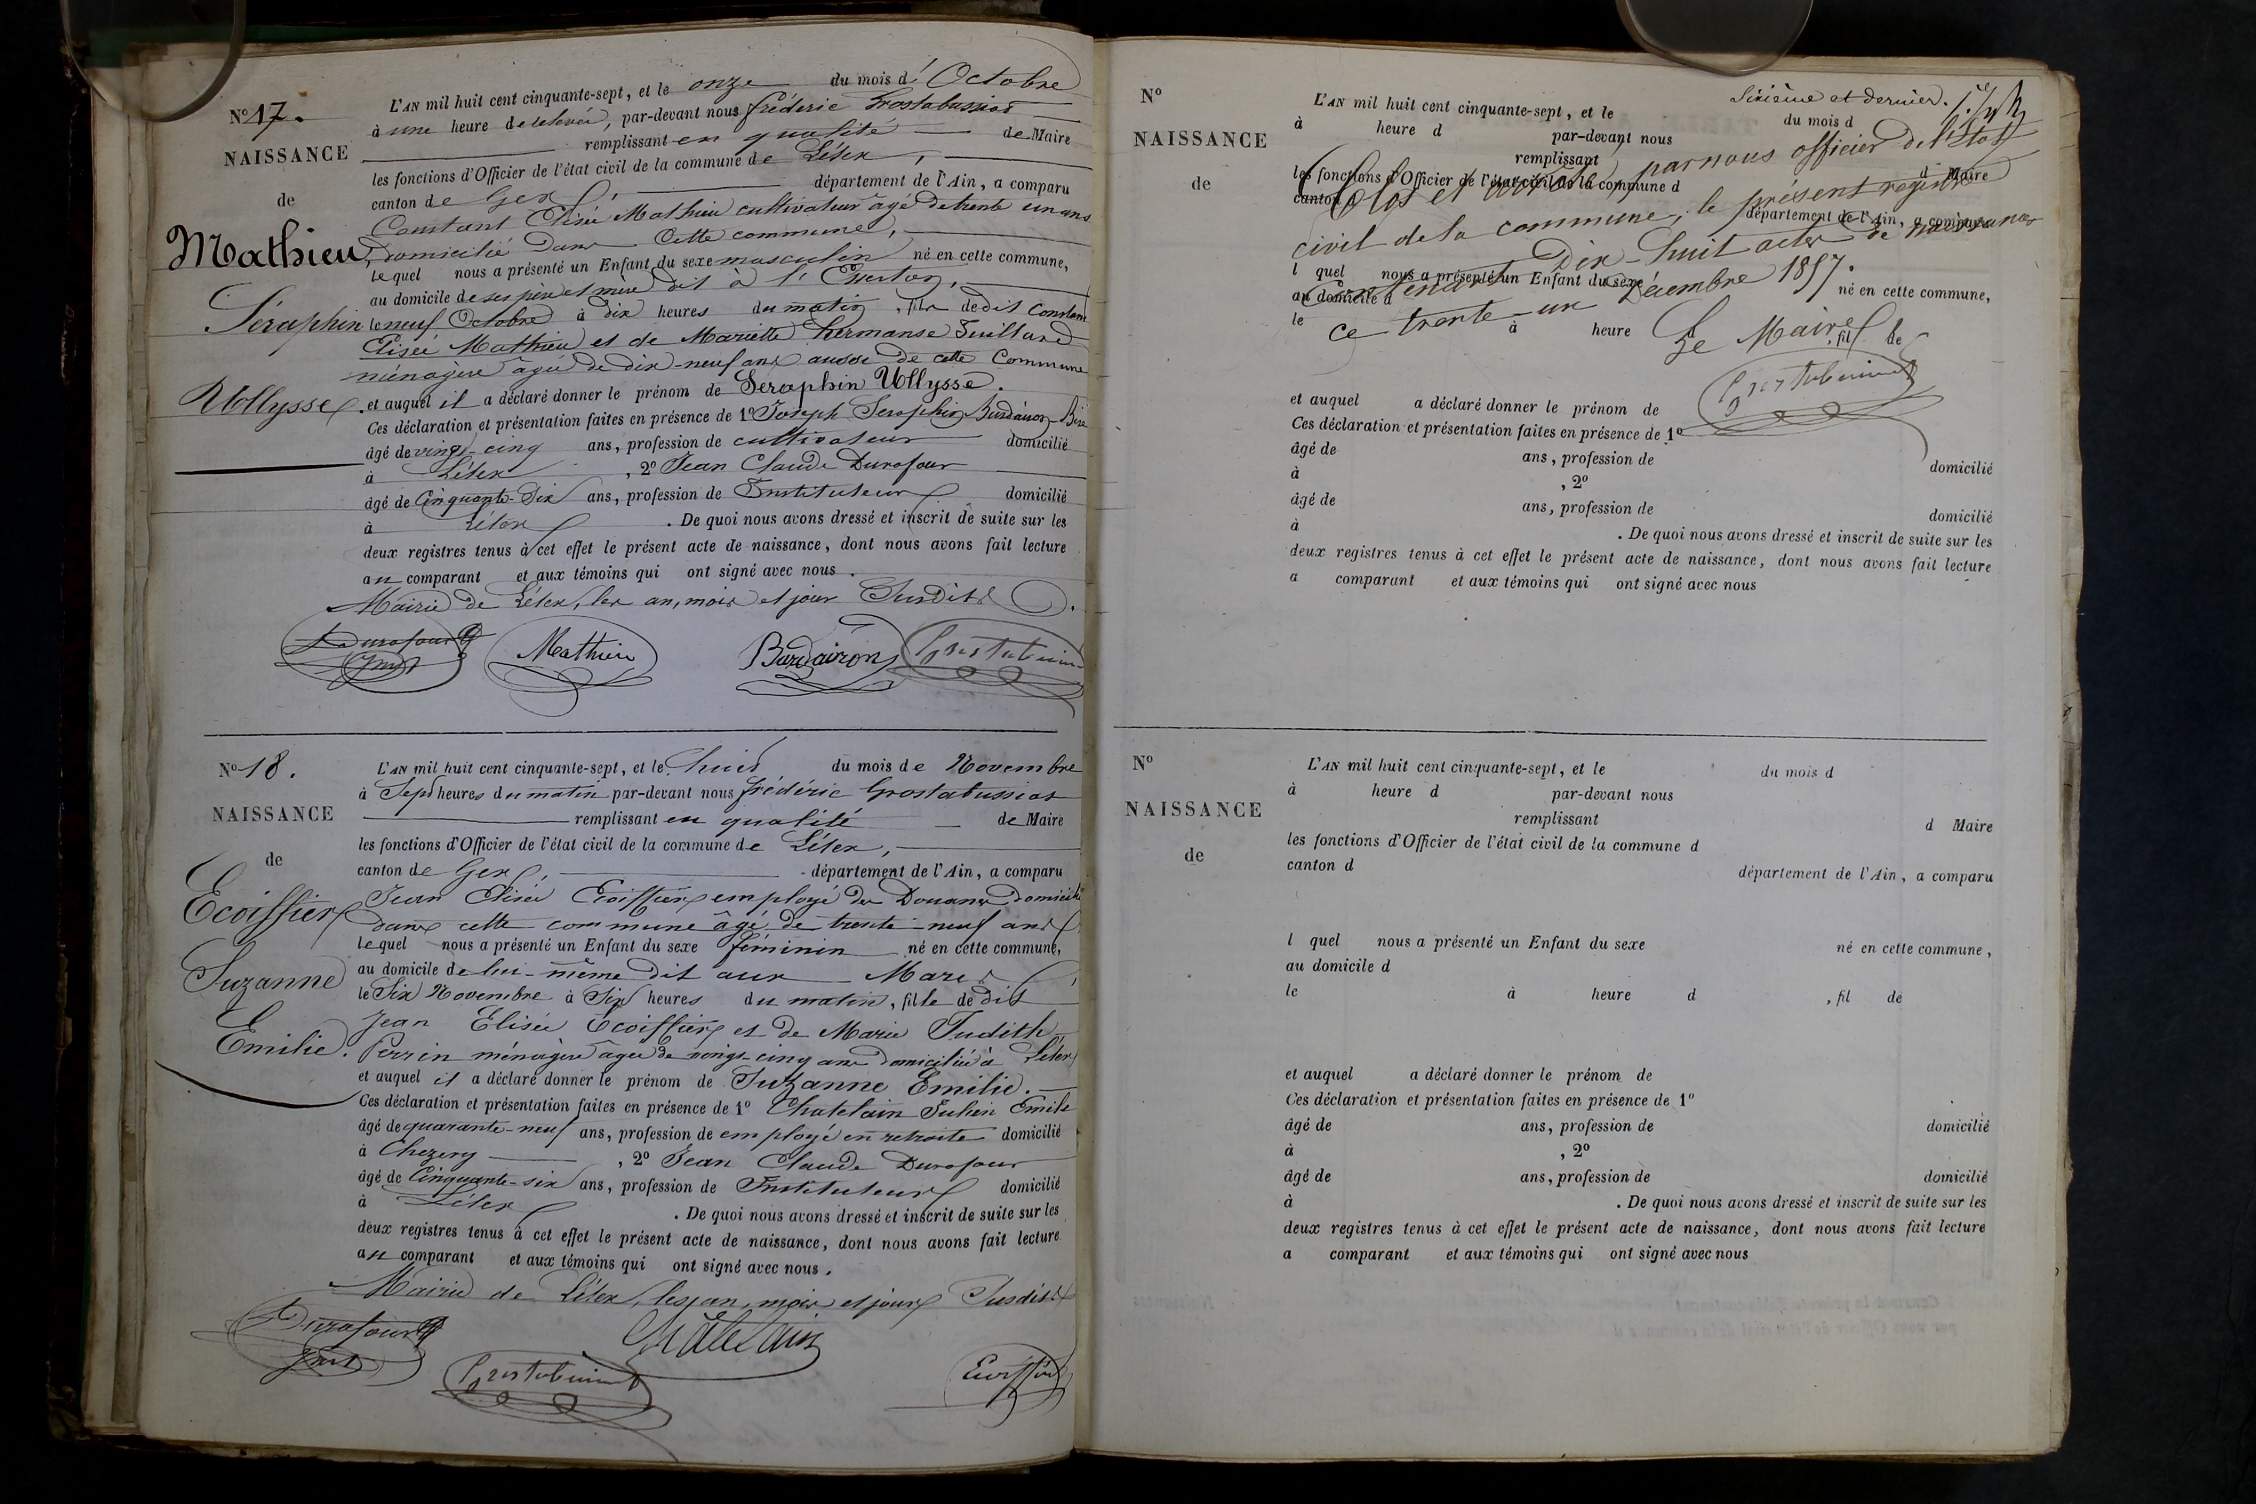 No 17.
NAISSANCE
de
Mathieu
Séraphin
Ullysse.
L'AN mil huit cent cinquante-sept, et le onze du mois d'Octobre
à une heure de relevée, par-devant nous frédéric Grostabussiat
remplissant en qualité de Maire
les fonctions d'Officier de l'état civil de la commune de Lélex,
canton de Gex, département de l'Ain, a comparu
Constant Elisée Mathieu cultivateur âgé de trente un ans
domicilié dans cette commune,
lequel nous a présenté un Enfant du sexe masculin né en cette commune,
au domicile de ses père et mère dit à l'
le neuf Octobre à dix heures du matin, fils de dit Constant
Elisée Mathieu et de Mariette hermanse
ménagère âgée de dix-neuf ans aussi de cette Commune
et auquel il a déclaré donner le prénom de Seraphin Ullysse.
Ces déclaration et présentation faites en présence de 1º Joseph Seraphin
âgé de vingt-cinq ans, profession de cultivateur domicilié
à Lélex, 2º Jean Claude Durafour
âgé de Cinquante-Six ans, profession de Instituteur domicilié
à Lélex. De quoi nous avons dressé et inscrit de suite sur les
deux registres tenus à cet effet le présent acte de naissance, dont nous avons fait lecture
au comparant et aux témoins qui ont signé avec nous.
Mairie de Lélex, les an, mois et jour Susdits.
Durafour Mathieu Bardairon Grostabussiat
Inst
No 18.
NAISSANCE
de
Ecoiffier
Suzanne
Emilie.
L'AN mil huit cent cinquante-sept, et le huit du mois de Novembre
à Sept heures du matin par-devant nous frédéric Grostabussiat
remplissant en qualité de Maire
les fonctions d'Officier de l'état civil de la commune de Lélex,
canton de Gex, département de l'Ain, a comparu
Jean Elisée Ecoiffier employé des Douanes domicilié
dans cette commune âgé de trente-neuf ans
lequel nous a présenté un Enfant du sexe féminin né en cette commune,
au domicile de lui-même dit aux Mares
le Six Novembre à Six heures du matin, fille de dit
Jean Elisée Ecoiffier et de Marie Judith
Perrin ménagère âgée de vingt-cinq ans domiciliée à Lélex
et auquel il a déclaré donner le prénom de Suzanne Emilie.
Ces déclaration et présentation faites en présence de 1º Chatelain Julien Emile
âgé de quarante-neuf ans, profession de employé en retraite domicilié
à Chezery, 2º Jean Claude Durafour
âgé de Cinquante-six ans, profession de Instituteur domicilié
à Lélex. De quoi nous avons dressé et inscrit de suite sur les
deux registres tenus à cet effet le présent acte de naissance, dont nous avons fait lecture
au comparant et aux témoins qui ont signé avec nous.
Mairie de Lélex, les an, mois et jour Susdits
Durafour Châtelain
Inst Grostabussiat Ecoiffier
Sixième et dernier.
No
NAISSANCE
de
L'AN mil huit cent cinquante-sept, et le du mois d
à heure d par-devant nous
remplissant d Maire
les fonctions d'Officier de l'état civil de la commune d
canton d département de l'Ain, a comparu
Clos et arrêté, par nous officier de l'état
civil de la commune, le présent registre
contenant Dix-huit actes de naissances
ce trente-un Décembre 1857.
Le Maire
Grostabussiat
l quel nous a présenté un Enfant du sexe né en cette commune,
au domicile d
le à heure , fil de
et auquel a déclaré donner le prénom de
Ces déclaration et présentation faites en présence de 1º
âgé de ans, profession de domicilié
à , 2º
âgé de ans, profession de domicilié
à . De quoi nous avons dressé et inscrit de suite sur les
deux registres tenus à cet effet le présent acte de naissance, dont nous avons fait lecture
a comparant et aux témoins qui ont signé avec nous
No
NAISSANCE
de
L'AN mil huit cent cinquante-sept, et le du mois d
à heure d par-devant nous
remplissant d Maire
les fonctions d'Officier de l'état civil de la commune d
canton d département de l'Ain, a comparu
l quel nous a présenté un Enfant du sexe né en cette commune,
au domicile d
le à heure d , fil de
et auquel a déclaré donner le prénom de
Ces déclaration et présentation faites en présence de 1º
âgé de ans, profession de domicilié
à , 2º
âgé de ans, profession de domicilié
à . De quoi nous avons dressé et inscrit de suite sur les
deux registres tenus à cet effet le présent acte de naissance, dont nous avons fait lecture
a comparant et aux témoins qui ont signé avec nous